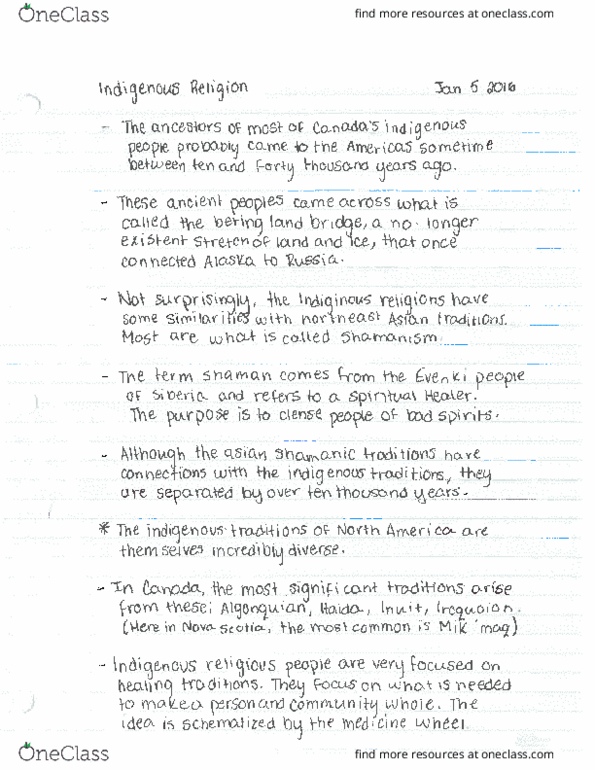 OneClass
find more resources at oneclass.com
Indigenous Religion
Jan 5 2016
- The ancestors of most of Canada's indigenous
people probably came to the Americas sometime
between ten and forty thousand years ago.
- These ancient peoples came across what is
called the bering land bridge, a no longer
existent stretch of land and ice, that once
connected Alaska to Russia.
- Not surprisingly, the Indiginous religions have
some similarities with northeast Asian traditions.
Most are what is called Shamanism.
- The term shaman comes from the Evenki people
of Siberia and refers to a spiritual Healer.
The purpose is to clense people of bad spirits.
- Although the asian shamanic traditions have
connections with the indigenous traditions, they
are separated by over ten thousand years.
* The indigenous traditions of North America are
themselves incredibly diverse.
- In Canada, the most significant traditions arise
from these: Algonquian, Haida, Inuit, Iroquoian.
(Here in Nova Scotia, the most common is Mik'maq)
- Indigenous religious people are very focused on
healing traditions. They focus on what is needed
to make a person and community whole. The
idea is schematized by the medicine wheel.
OneClass
find more resources at oneclass.com